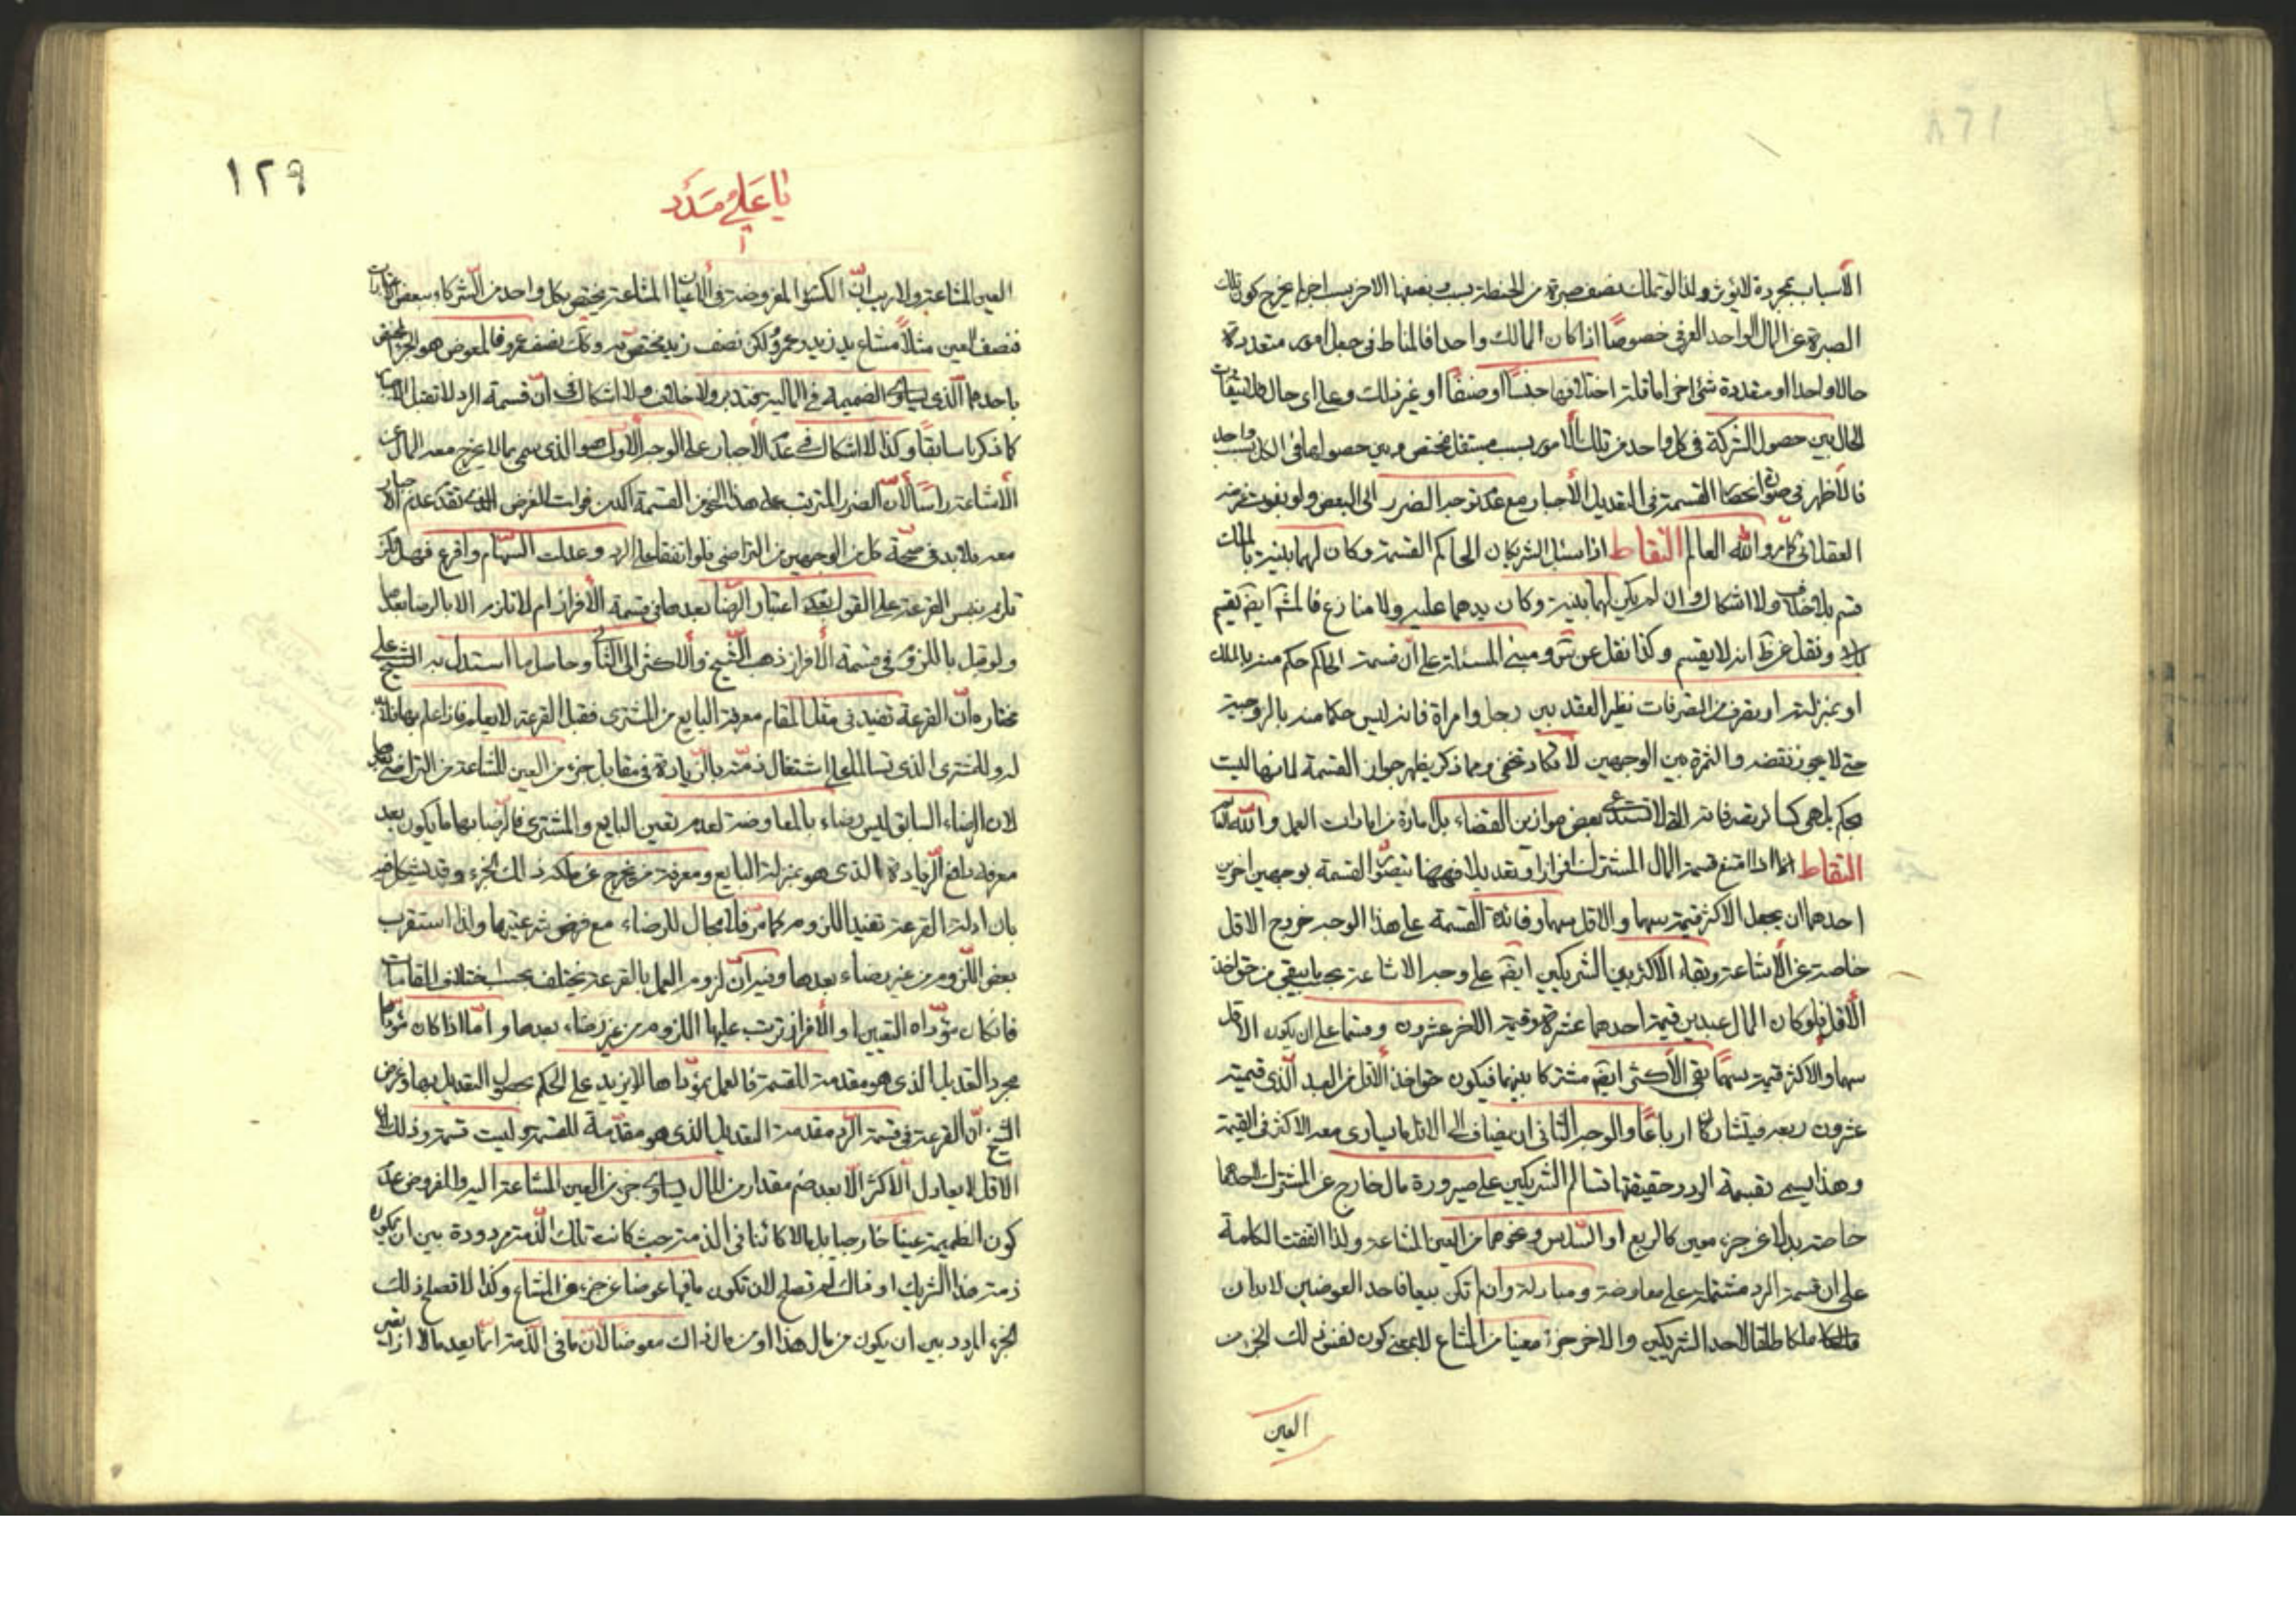 الأسباب بمجردة لا يؤثر ولذا لو تملك نصف صبرة من الحنطة بسبب ونصفها الاخر بسبب اخر لم يخرج كون تلك
الصبرة عن المال الواحد العرفي خصوصًا اذا كان المالك واحدا فالمناط في جعل امور متعددة
مالا واحدا او متعددة شئ اخر اما قلة اختلافها جنسًا او صنفًا او غير ذلك وعلى اي حال
الحال بين حصول الشركة في كل واحد من تلك الأمور بسبب مستقل مختص وبين حصولها في الكل بسبب واحد
فالأظهر في صورة انحصار القسمة في التعديل الأجبار مع عدم توجه الضرر الى البعض ولو بفوت غرضه
العقلائي كما مر والله العالم التقاط اذا سئل الشريكان الحاكم القسمة وكان لهما بينة بالملك
قسم بلا خلاف ولا اشكال وان لم يكن لهما بينة وكان يدهما عليه ولا منازع فالمشهور ايضا يقسم
ونقل عن ط انه لا يقسم وكذا نقل عن ومبنى المسئلة على ان قسمة الحاكم حكم منه بالملك
او بمنزلته او تصرف من التصرفات نظير العقد بين رجل وامراة فانه ليس حكما منه بالزوجية
حتى لا يجوز نقضه والثمرة بين الوجهين لا تكاد تخفى ومما ذكر يظهر جواز القسمة لانها ليست
بحكم بل هي كسائر تصرفاته التي لا تستدعي بعض موازين القضاء بل امارة من امارات العمل والله
التقاط اذا امتنع قسمة المال المشترك افرازا وتعديلا فههنا يتصور القسمة بوجهين اخرين
احدهما ان يجعل الاكثر قيمة سهما والاقل سهما وفائدة القسمة على هذا الوجه خروج الاقل
خاصة عن الأشاعة وبقاء الاكثر بين الشريكين ايضا على وجه الاشاعة بحيث يبقى من حق اخذ
الأقل فلو كان المال عبدين قيمة احدهما عشرة وقيمة الاخر عشرون وقسما على ان يكون الاقل
سهما والاكثر قيمة سهمًا بقي الأكثر ايضا مشتركا بينهما فيكون حق اخذ الأقل من العبد الذي قيمته
عشرون ربعه فيتشاركان ارباعًا والوجه الثاني ان يضاف الى الاقل ما يساوي معه الاكثر في القيمة
وهذا يسمى بقسمة الرد وحقيقتها تسالم الشريكين على صيرورة مال خارج عن المشترك لاحدهما
خاصة بدلا عن جزء معين كالربع او السدس ونحوهما من العين المشاعة ولذا اتفقت الكلمة
على ان قسمة الرد مشتملة على معاوضة ومبادلة وان لم تكن بيعا فاحد العوضين لا بد ان
ملكا طلقا لاحد الشريكين والاخر جزءا معينا من المشاع لا بمعنى كون نفس ذلك الجزء من
العين
١٢٩
يا علي مدد
العين المشاعة ولا ريب ان الكسور المفروضة في الأعيان المشاعة يختص بكل واحد من الشركاء بعض
فنصف العين مثلاً مشاع بين زيد وعمرو لكن نصف زيد مختص به وكذلك نصف عمرو فالمعوض هو الجزء المختص
باحدهما الذي يساوي الضميمة في المالية فتدبر ولا خلاف ولا اشكال في ان قسمة الرد لا تقبل الاجبار
كما ذكرنا سابقًا وكذا لا اشكال في عدم الأجبار على الوجه الأول وهو الذي سمي بما لا يخرج معه المال عن
الأشاعة راسًا لأن الضرر المترتب على هذا النحو من القسمة اكثر من فوات الغرض الذي تقدم عدم الاجبار
معه بل لا بد في صحة كل من الوجهين من التراضي فلو اتفقا على الرد وعدلت السهام واقرع فهل
تلزم بنفس القرعة على القول بعدم اعتبار الرضا بعدها في قسمة الأفراز ام لا تلزم الا بالرضا بعدها
ولو قيل باللزوم في قسمة الأفراز ذهب الشيخ والاكثر الى الثاني وحاصل ما استدل به الشيخ على
مختاره أن القرعة تفيد في مثل المقام معرفة البايع من المشتري فقبل القرعة لا يعلم
له وللمشتري الذي تسالما على اشتغال ذمته بالزيادة في مقابل جزء من العين المشاعة من التراضي
لان الرضاء السابق ليس رضاء بالمعاوضة لعدم تعين البايع والمشتري فالرضا بها ما يكون بعد
معرفة دافع الزيادة الذي هو بمنزلة البايع ومعرفة من يخرج عن ملكه ذلك الجزء وقد يشكل فيه
بان ادلة القرعة تفيد اللزوم كما مر فلا مجال للرضاء مع فرض شرعيتها ولذا استقرب
بعض اللزوم من غير رضاء بعدها وفيه ان لزوم العمل بالقرعة يختلف بحسب اختلاف المقامات
فان كان مؤداه التعيين او الأفراز ترتب عليها اللزوم من غير رضاء بعدها واما اذا كان مؤداها
مجرد التعديل الذي هو مقدمة القسمة فالعمل بمؤداها لا يزيد على الحكم بحصول التعديل بها وغرض
الشيخ ان القرعة في قسمة الرد مقدمة التعديل الذي هو مقدمة للقسمة وليست قسمة وذلك لان
الاقل لا يعادل الاكثر الا بعد ضم مقدار من المال يساوي جزء من العين المشاعة اليه والمفروض عدم
كون الضميمة عينا خارجيا بل مالا كائنا في الذمة حيث كانت تلك الذمة مرددة بين ان يكون
ذمة هذا الشريك او ذاك لم تصلح لان تكون ما فيها عوضا عن جزء من المشاع وكذا لا تصلح ذلك
الجزء المردد بين ان يكون من مال هذا او من مال ذاك معوضا لأن ما في الذمة انما يعد مالا اذا